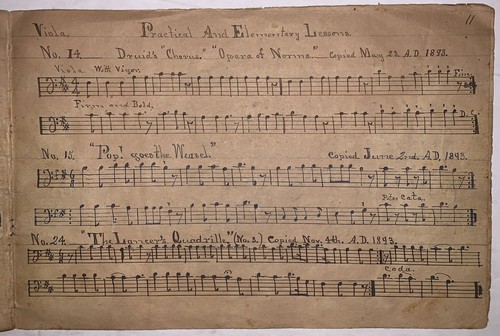 Viola. Practical And Elementary Lessons. 11
No. 14. Druid's "Chorus." "Opera of Norma." Copied May 23. A.D. 1893.
Viola With Vigor. Fine.
Firm and Bold.
D.C.
No. 15. "Pop! goes the Weasel." Copied June 2nd. A.D. 1893.
Cata.
No. 24. "The Lancer's Quadrille" (No. 2.) Copied Nov. 4th. A.D. 1893.
Coda.